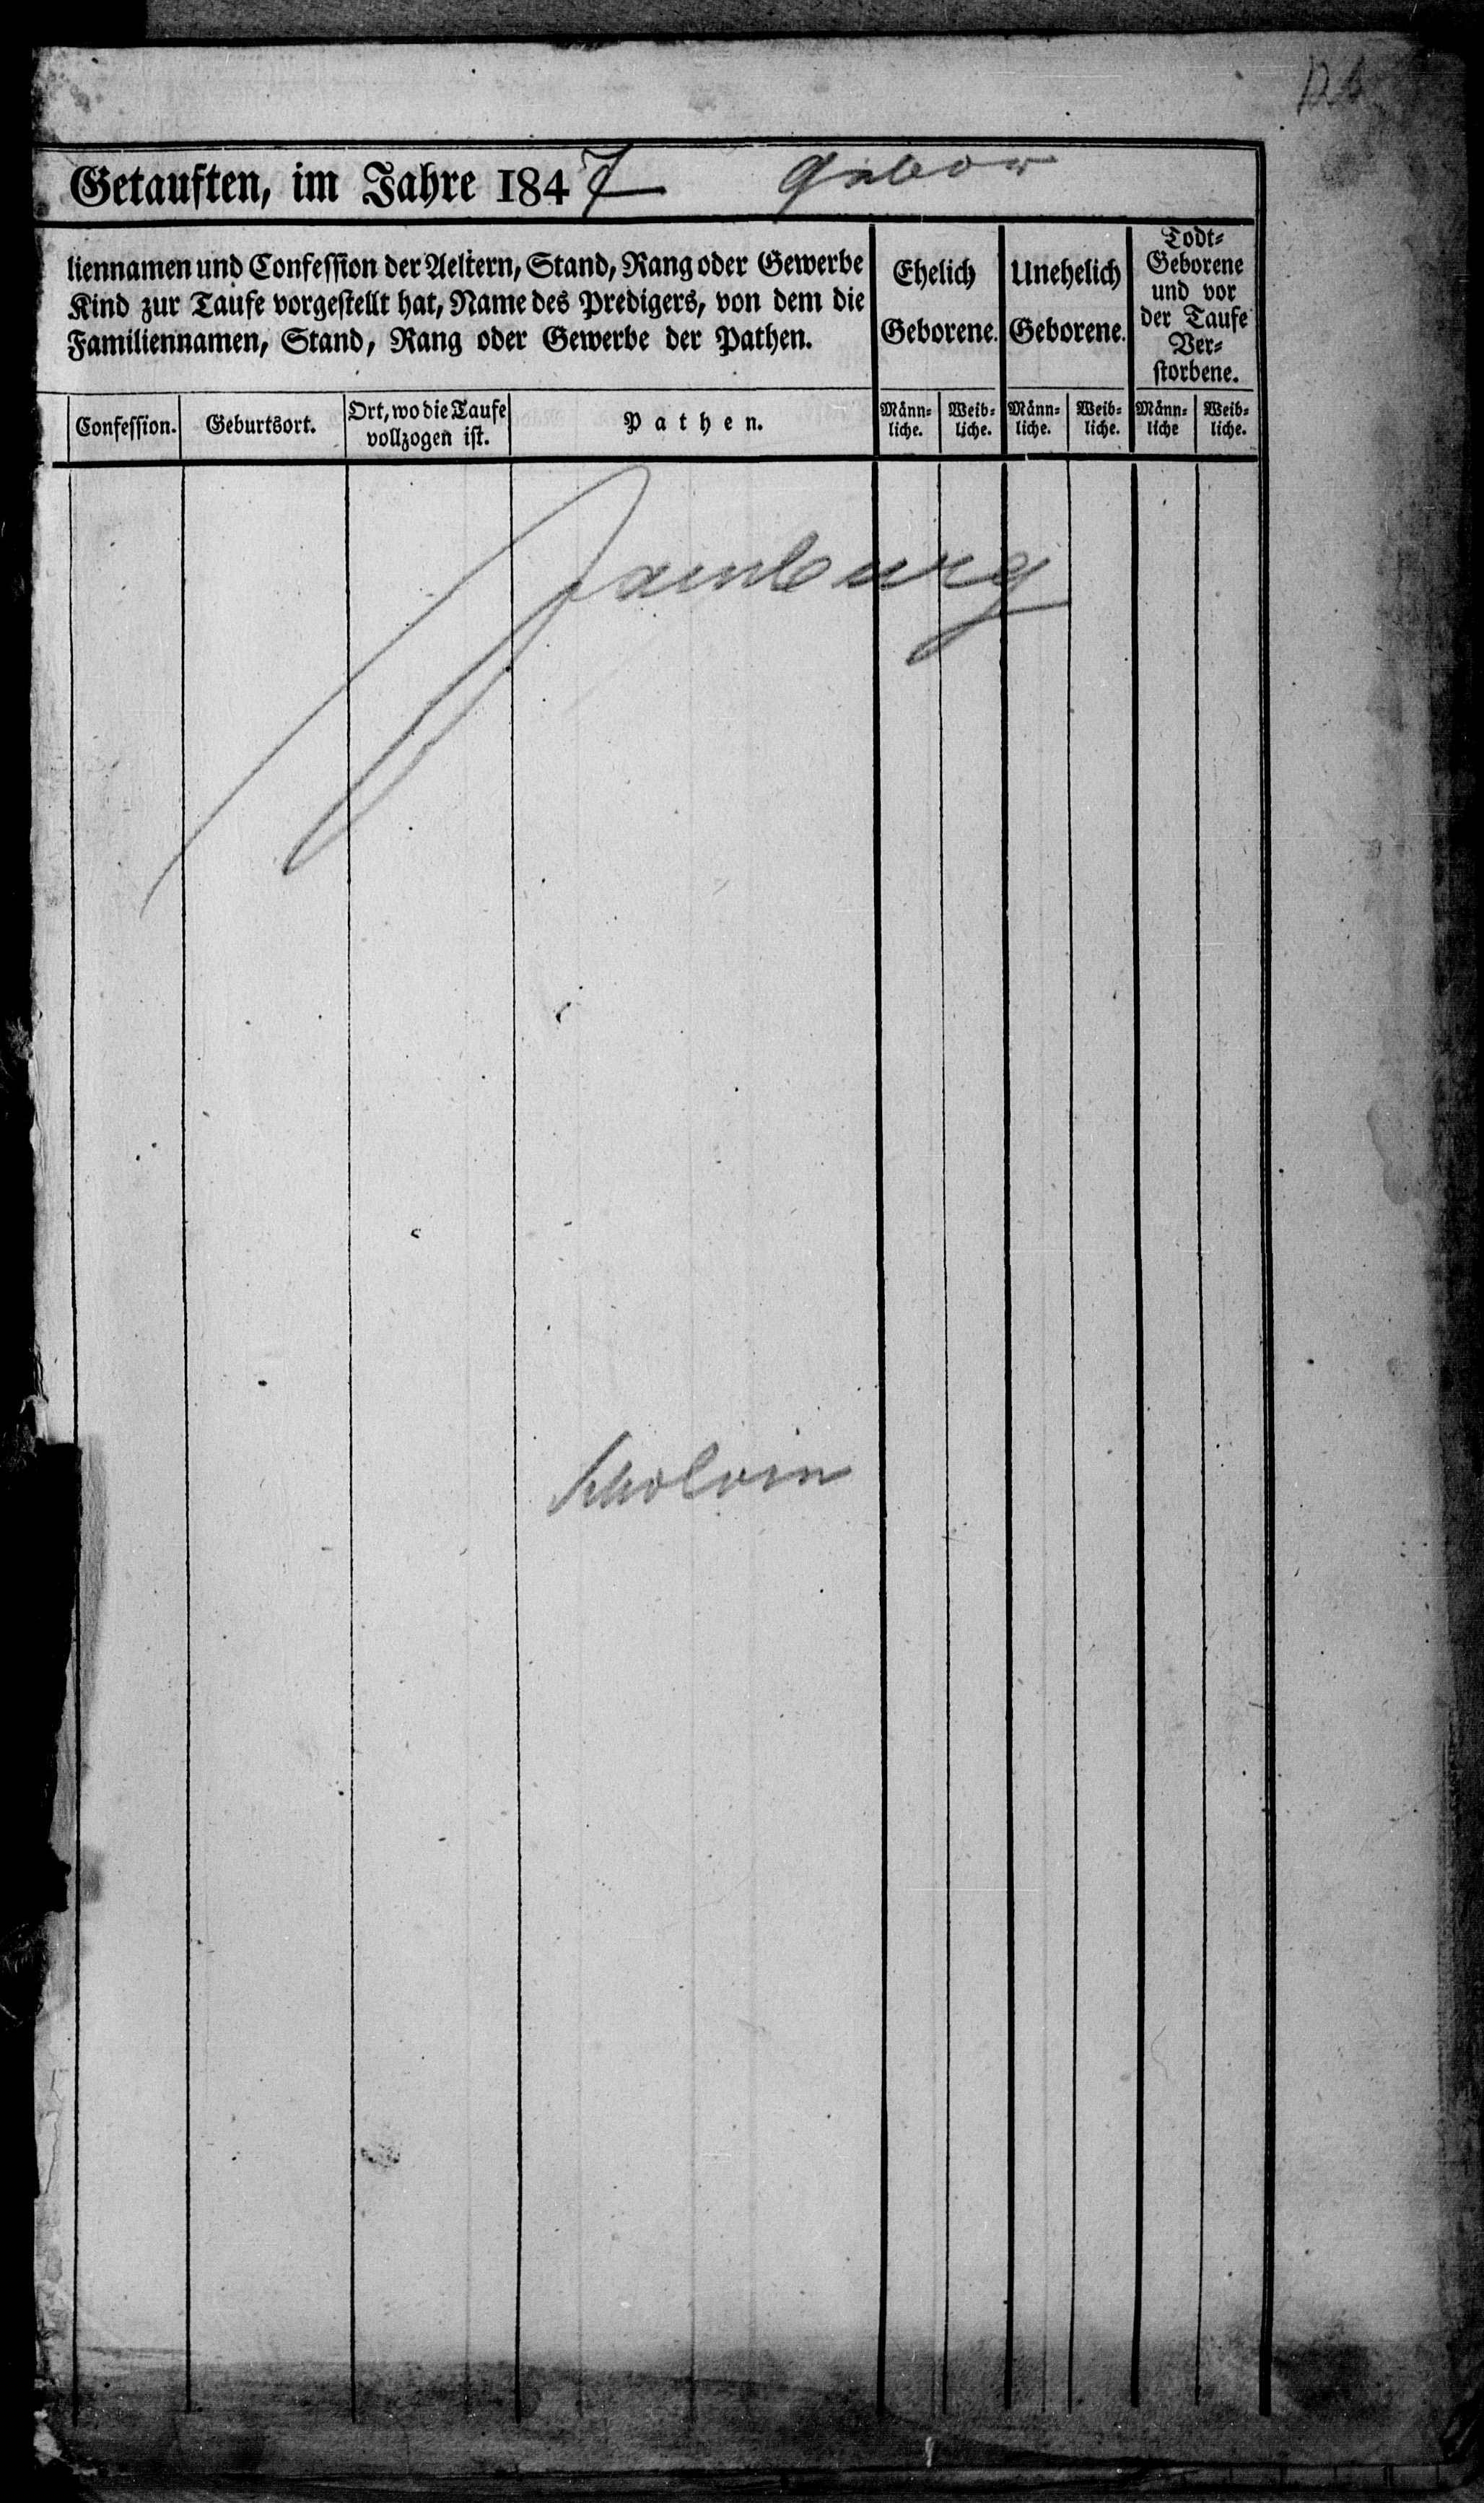 Getauften, im Jahre 1847
liennamen und Confession der Aeltern, Stand, Rang oder Gewerbe
Kind zur Taufe vorgestellt hat, Name des Predigers, von dem die
Familiennamen, Stand, Rang oder Gewerbe der Pathen.
Ehelich
Geborene.
Unehelich
Geborene.
Todt-
Geborene
und vor
der Taufe
Ver-
storbene.
Confession.
Geburtsort.
Ort, wo die Taufe
vollzogen ist.
Pathen.
Männ-
liche.
Weib-
liche.
Männ-
liche.
Weib-
liche.
Männ-
liche
Weib-
liche.
Jamburg